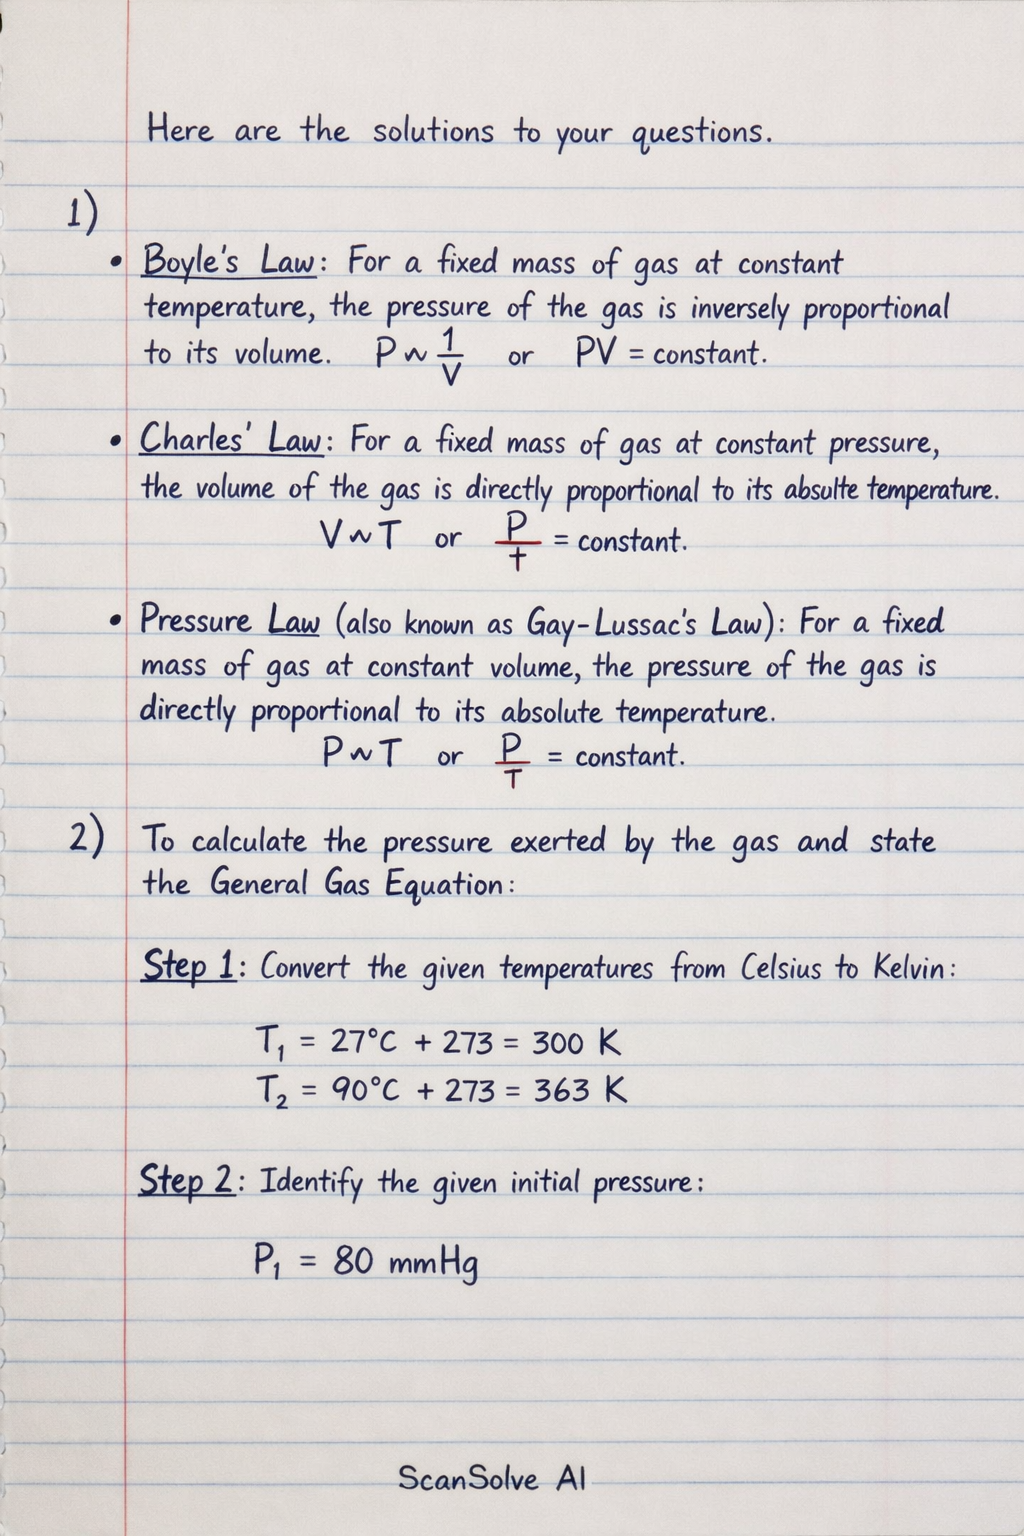 Here are the solutions to your questions.
1)
• Boyle's Law: For a fixed mass of gas at constant
temperature, the pressure of the gas is inversely proportional
to its volume. P ~ 1/V or PV = constant.
• Charles' Law: For a fixed mass of gas at constant pressure,
the volume of the gas is directly proportional to its absulte temperature.
V ~ T or P/t = constant.
• Pressure Law (also known as Gay-Lussac's Law): For a fixed
mass of gas at constant volume, the pressure of the gas is
directly proportional to its absolute temperature.
P ~ T or P/T = constant.
2) To calculate the pressure exerted by the gas and state
the General Gas Equation:
Step 1: Convert the given temperatures from Celsius to Kelvin:
T₁ = 27°C + 273 = 300 K
T₂ = 90°C + 273 = 363 K
Step 2: Identify the given initial pressure:
P₁ = 80 mmHg
ScanSolve AI